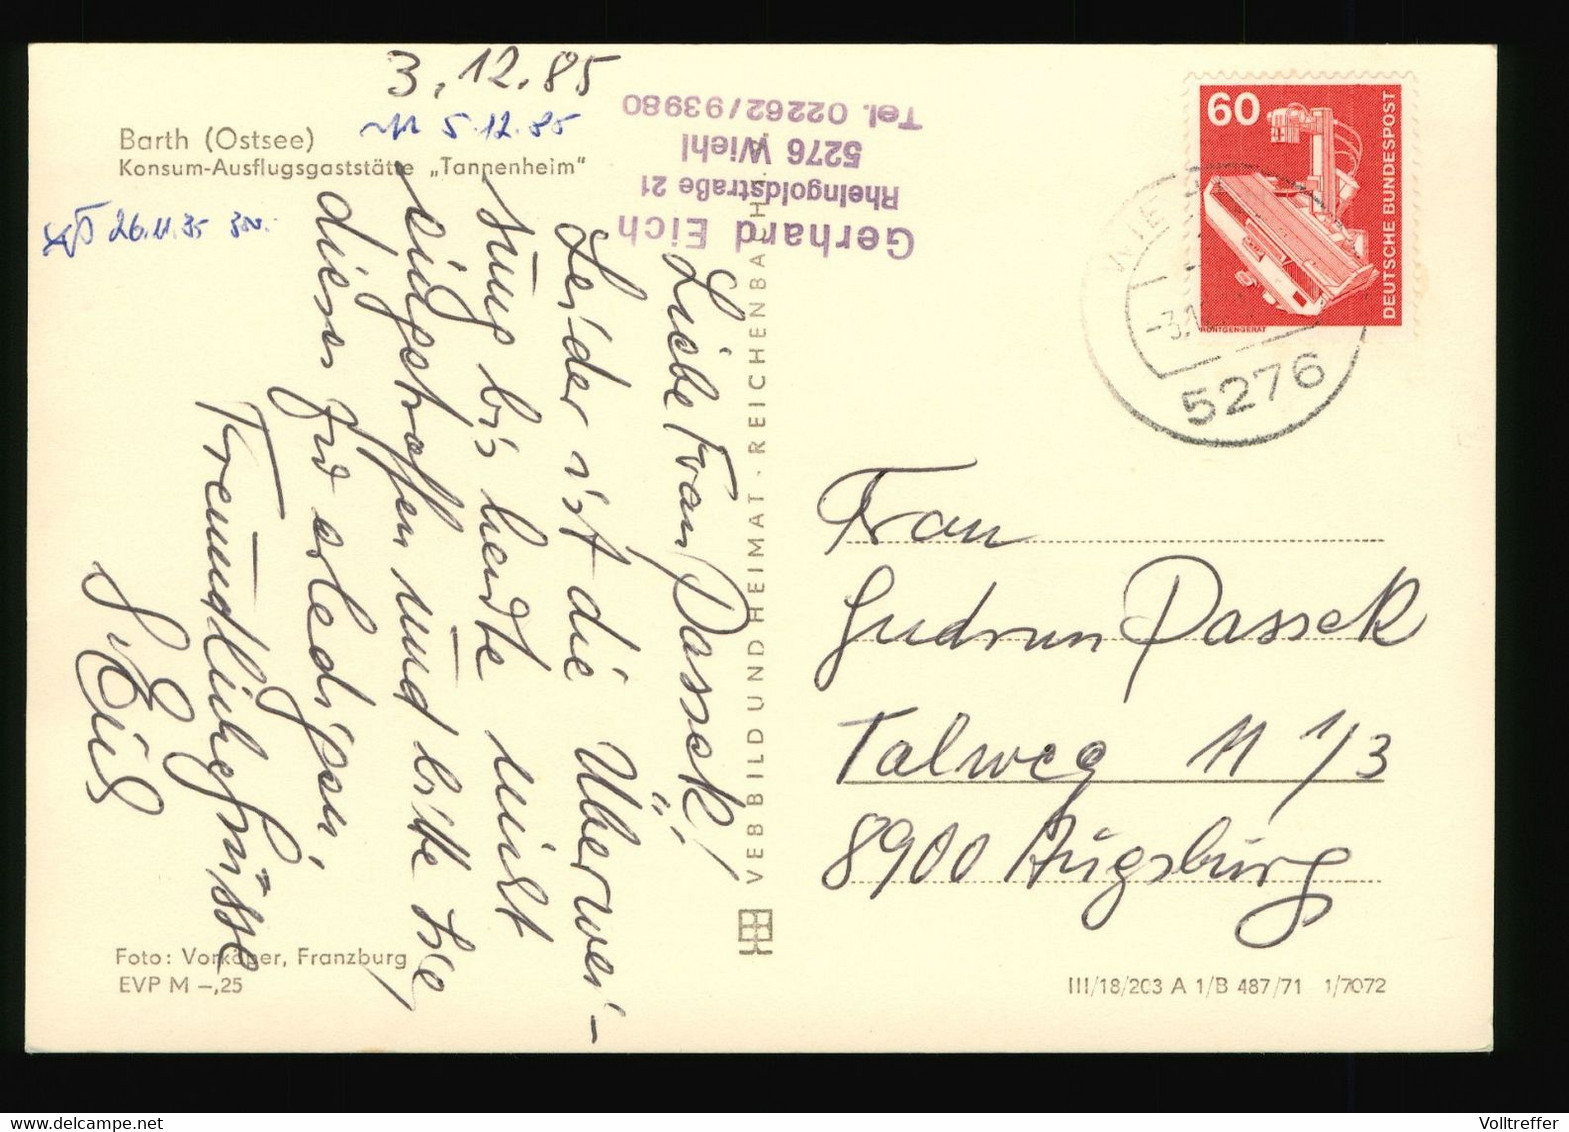 3.12.85
5.12.85
Barth (Ostsee)
Konsum-Ausflugsgaststätte „Tannenheim"
26.11.85 300.-
Gerhard Eich
Rheingoldstraße 21
5276 Wiehl
Tel. 02262/93980
Liebe Frau Passek!
Leider ist die Überwei-
sung bis heute nicht
eingetroffen und bitte Sie,
dieses zu erledigen.
Freundlichegrüsse
G. Eich
VEB BILD UND HEIMAT · REICHENBACH
60
DEUTSCHE BUNDESPOST
RÖNTGENGERÄT
WIEHL
-3.12
5276
Frau
Gudrun Passek
Talweg 11 1/3
8900 Augsburg
Foto: Vorköper, Franzburg
EVP M –,25
III/18/203 A 1/B 487/71 1/7072
Volltreffer